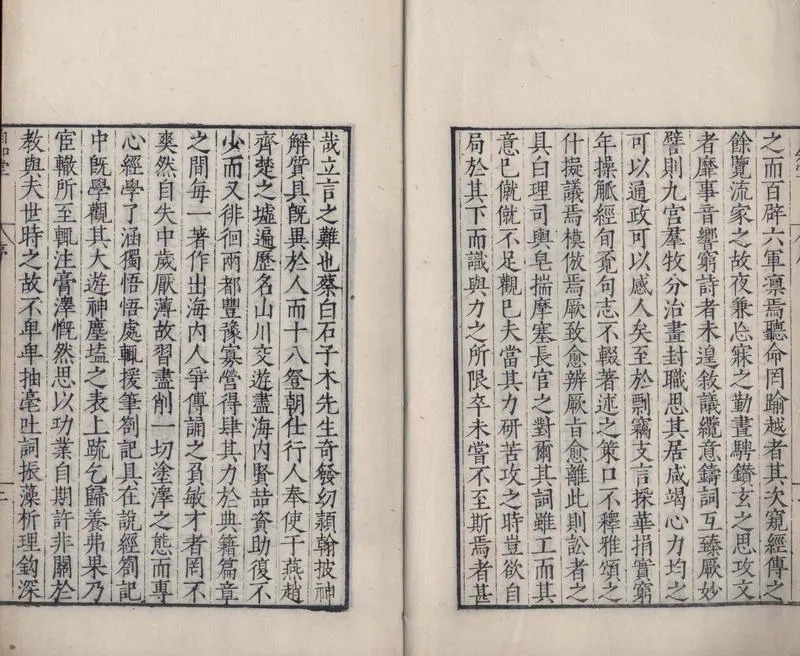 之而百辟六軍凛焉聽命罔踰越者其次窺經傳之
餘覽流家之故夜兼忘寐之勤晝騁鑚玄之思攻文
者靡事音響窮詩者未遑敘議纜意鑄詞互臻厥妙
譬則九官羣牧分治畫封職思其居咸竭心力均之
可以通政可以感人矣至於剽竊支言探華捐實窮
年操觚經旬覔句志不輟著述之策口不釋雅頌之
什擬議焉模倣焉厥致愈辨厥旨愈離此則訟者之
具白理司輿皂揣摩塞長官之對爾其詞雖工而其
意已僦僦不足觀已夫當其力研苦攻之時豈欲自
局於其下而識與力之所限卒未嘗不至斯焉者甚
哉立言之難也蔡白石子木先生奇發幼穎翰披神
解質具旣異於人而十八登朝仕行人奉使于燕趙
齊楚之墟遍歷名山川交遊盡海内賢喆資助復不
少而又徘徊兩都豐豫寡營得肆其力於典籍篇章
之間每一著作出海内人爭傳誦之負敏才者罔不
爽然自失中歲厭薄故習盡削一切塗澤之態而專
心經學了涵獨悟悟處輒援筆劄記具在說經劄記
中旣學觀其大遊神塵壒之表上疏乞歸養弗果乃
宦轍所至輒注膏澤慨然思以功業自期許非關於
教與夫世時之故不卑卑抽毫吐詞振藻析理鈎深
序